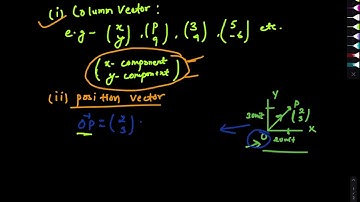 (i) Column vector :
e.g - (x y), (p q), (3 9), (5 -6) etc.
(x- component
y- component)
(ii) position vector
OP = (2 3).
Y
P (2 3)
3unit
O 2unit X